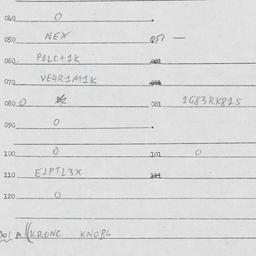 040 0
050 NEX 051 —
060 P1LC+1K
070 VE4R1M1K
080 0 081 1G83RKB1S
090 0
100 0 101 0
110 EJPTL3X
120 0
A KRONE KNOBL